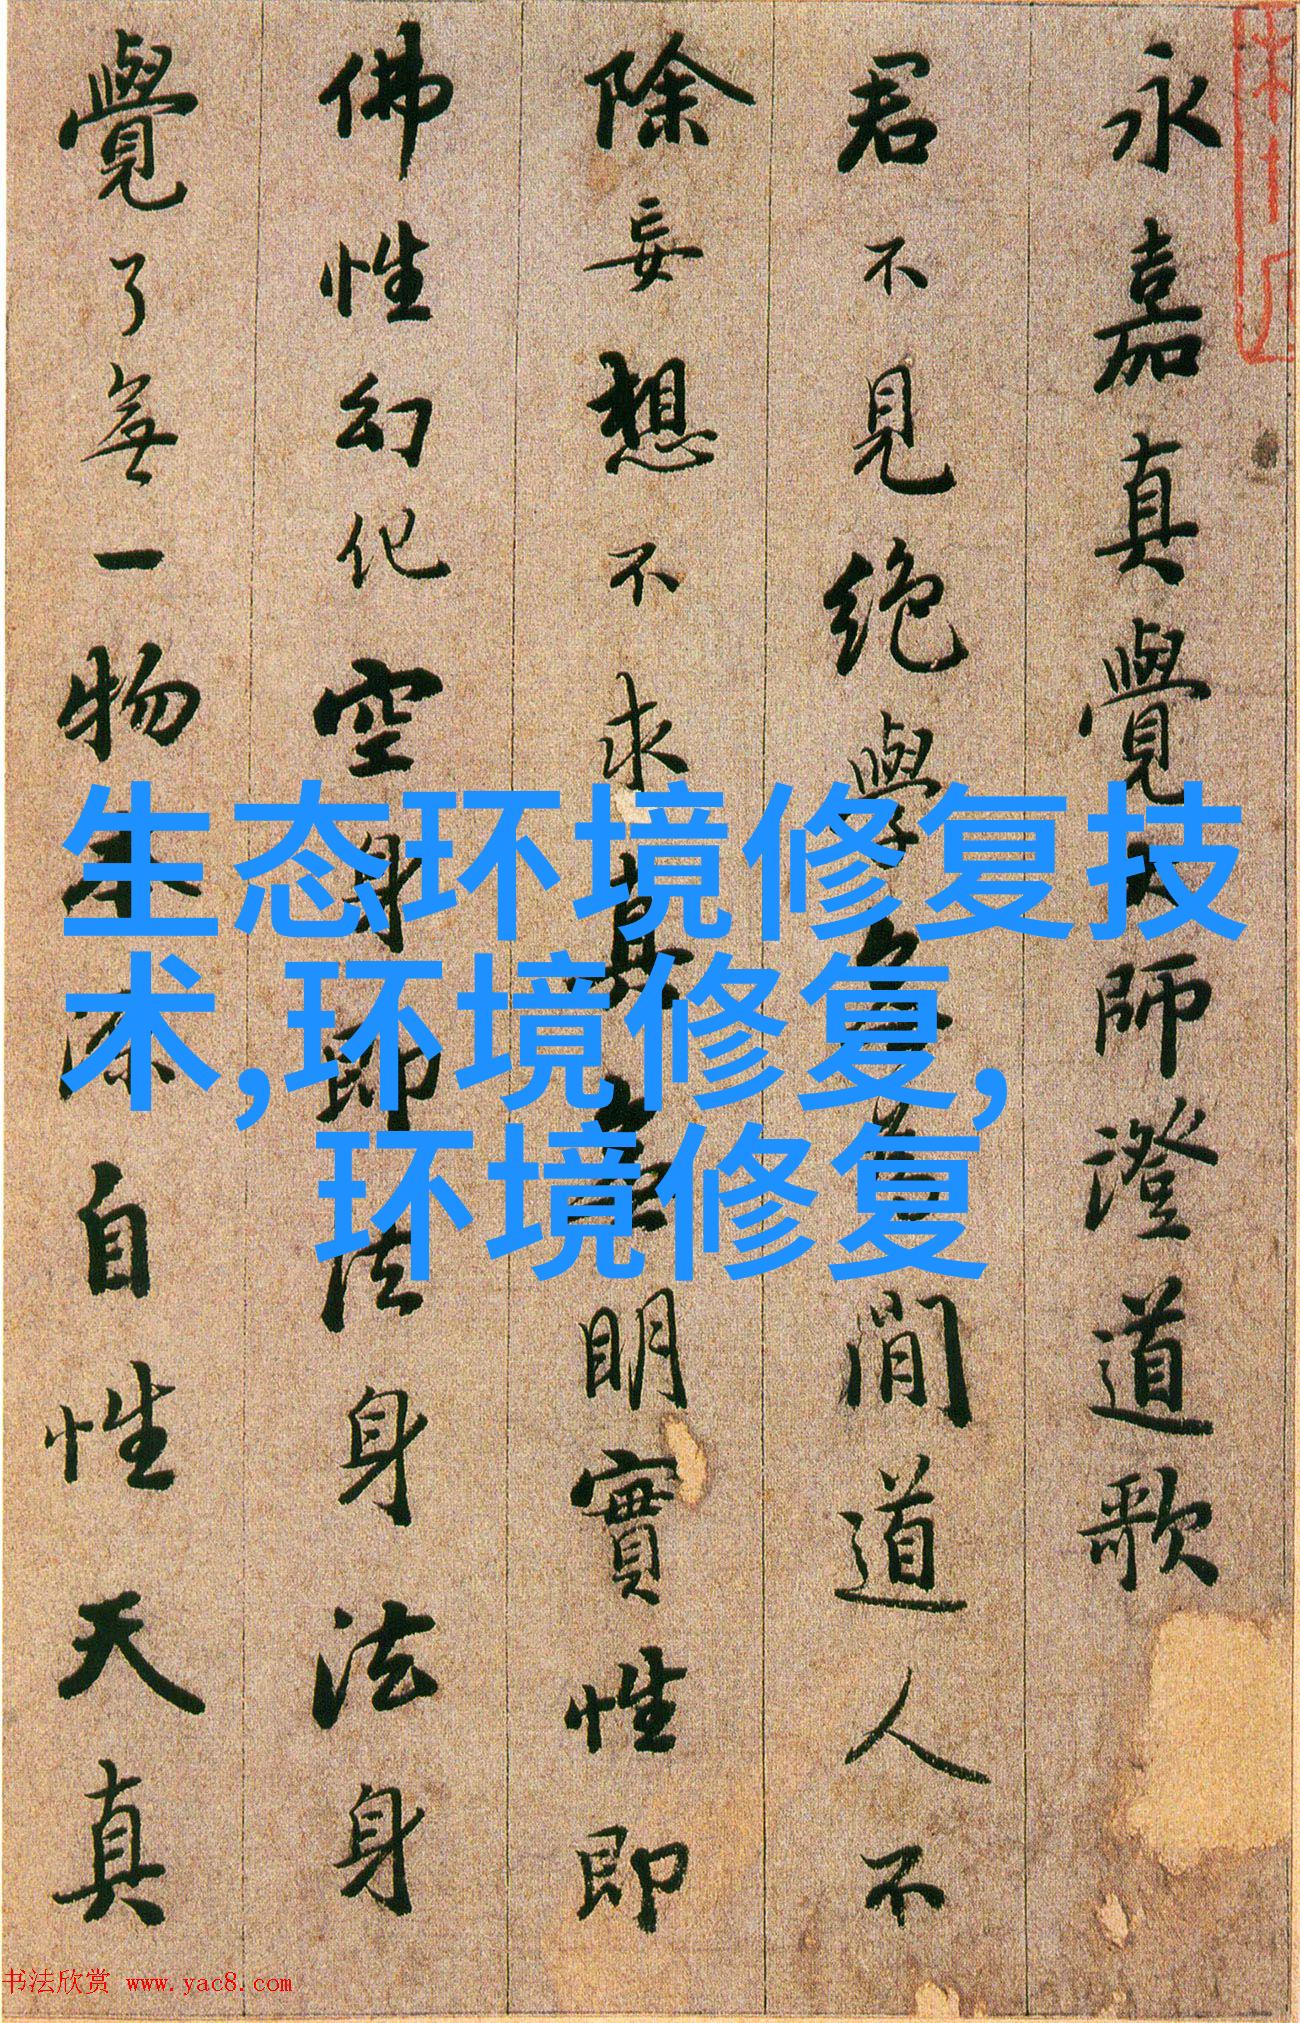 永嘉真覺大師澄道歌
君不見絶學無為閒道人不
除妄想不求真無明實性即
佛性幻化空身法身法身
覺了無一物本源自性天真
生态环境修复技
术,环境修复,
环境修复
书法欣赏 www.yac8.com